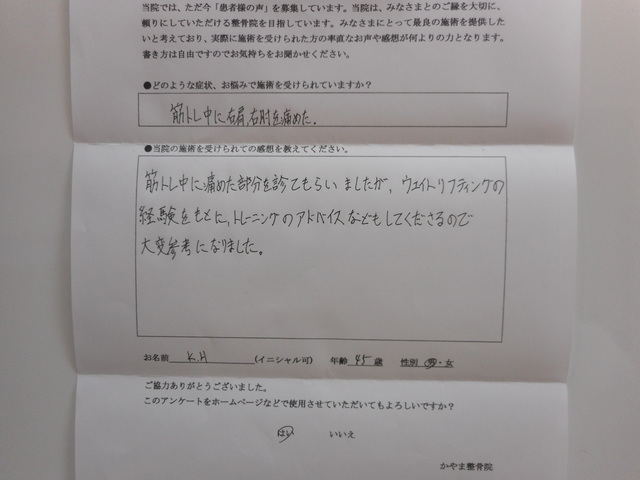 当院では、ただ今「患者様の声」を募集しています。当院は、みなさまとのご縁を大切に、
頼りにしていただける整骨院を目指しています。みなさまにとって最良の施術を提供した
いと考えており、実際に施術を受けられた方の率直なお声や感想が何よりの力となります。
書き方は自由ですのでお気持ちをお聞かせください。
●どのような症状、お悩みで施術を受けられていますか？
筋トレ中に右肩、右肘を痛めた。
●当院の施術を受けられての感想を教えてください。
筋トレ中に痛めた部分を診てもらいましたが、ウエイトリフティングの
経験をもとに、トレーニングのアドバイスなどもしてくださるので
大変参考になりました。
お名前 K.H (イニシャル可) 年齢 45 歳 性別 男・女
ご協力ありがとうございました。
このアンケートをホームページなどで使用させていただいてもよろしいですか？
はい いいえ
かやま整骨院